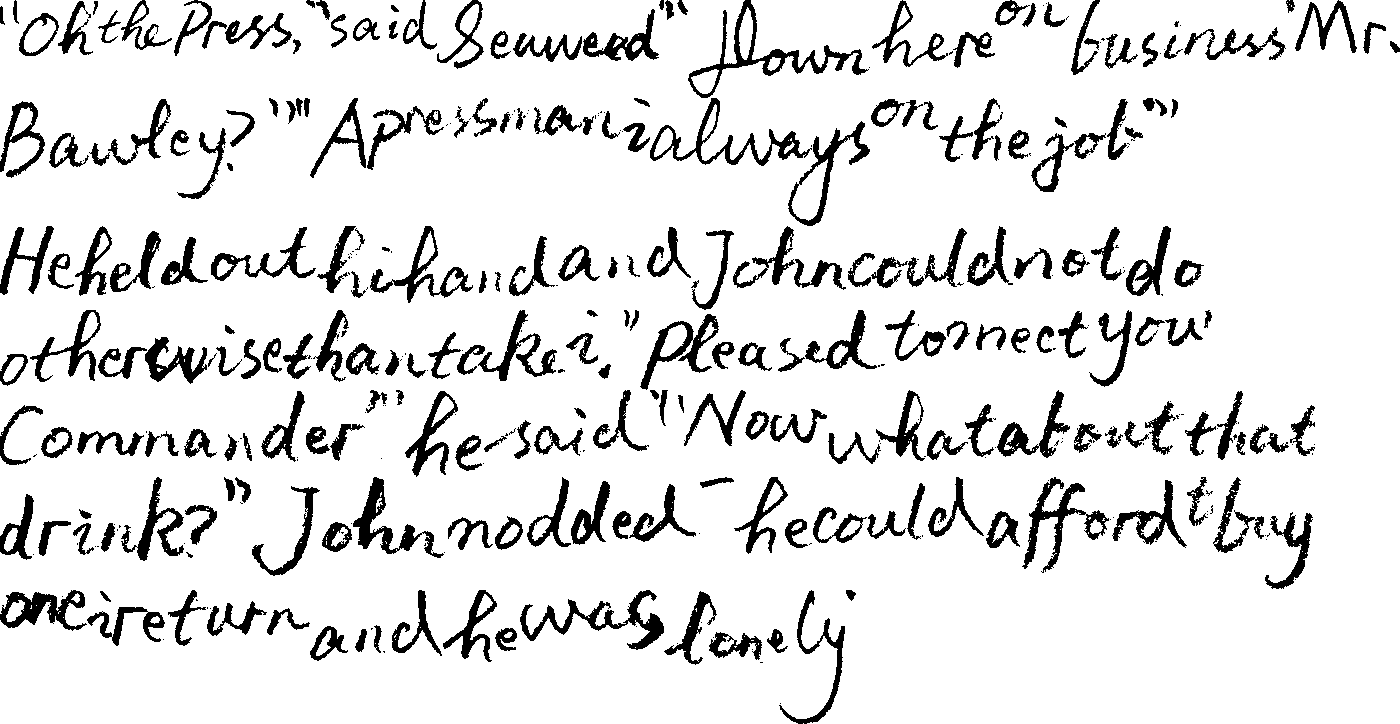 "Oh' the Press," said Seaweed" "Down here on business' Mr.
Bawley?'" "A pressman i always on the job'"
He held out hi hand and John could not do
otherwise than take i. "Pleased to meet you'
Commander'" he said "Now what about that
drink?" John nodded - he could afford t buy
one i return and he was lonely